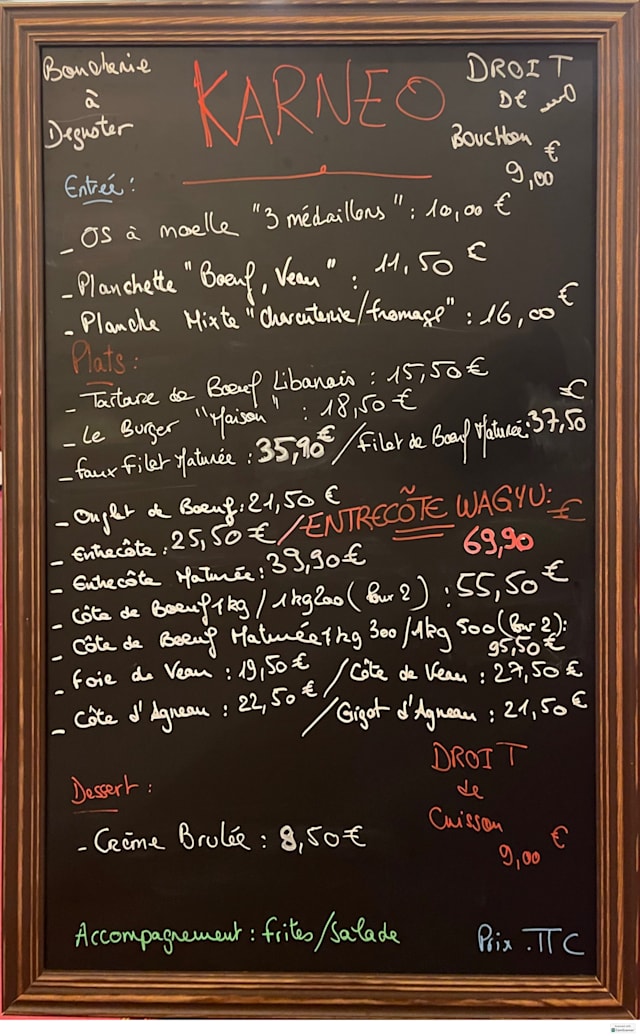 Boucherie
à
Deguster
KARNEO
DROIT
DE
Bouchon
9,00 €
Entrée :
- OS à moelle "3 médaillons" : 10,00 €
- Planchette "Boeuf, Veau" : 11,50 €
- Planche Mixte "Charcuterie/fromage" : 16,00 €
Plats :
- Tartare de Boeuf Libanais : 15,50 €
- Le Burger "Maison" : 18,50 €
- Faux Filet Maturée : 35,90 € / Filet de Boeuf Maturée : 37,50 €
- Onglet de Boeuf : 21,50 €
- Entrecôte : 25,50 € / ENTRECÔTE WAGYU : 69,90 €
- Entrecôte Maturée : 39,90 €
- Côte de Boeuf 1kg / 1kg200 (Pour 2) : 55,50 €
- Côte de Boeuf Maturée 1kg 300 / 1kg 500 (Pour 2) : 95,50 €
- Foie de Veau : 19,50 € / Côte de Veau : 27,50 €
- Côte d'Agneau : 22,50 € / Gigot d'Agneau : 21,50 €
DROIT
de
Cuisson
9,00 €
Dessert :
- Crème Brulée : 8,50 €
Accompagnement : frites/Salade
Prix : TTC